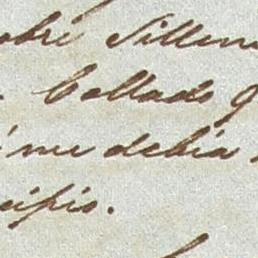 obré Sillem
Collado q
me debia
cipio.